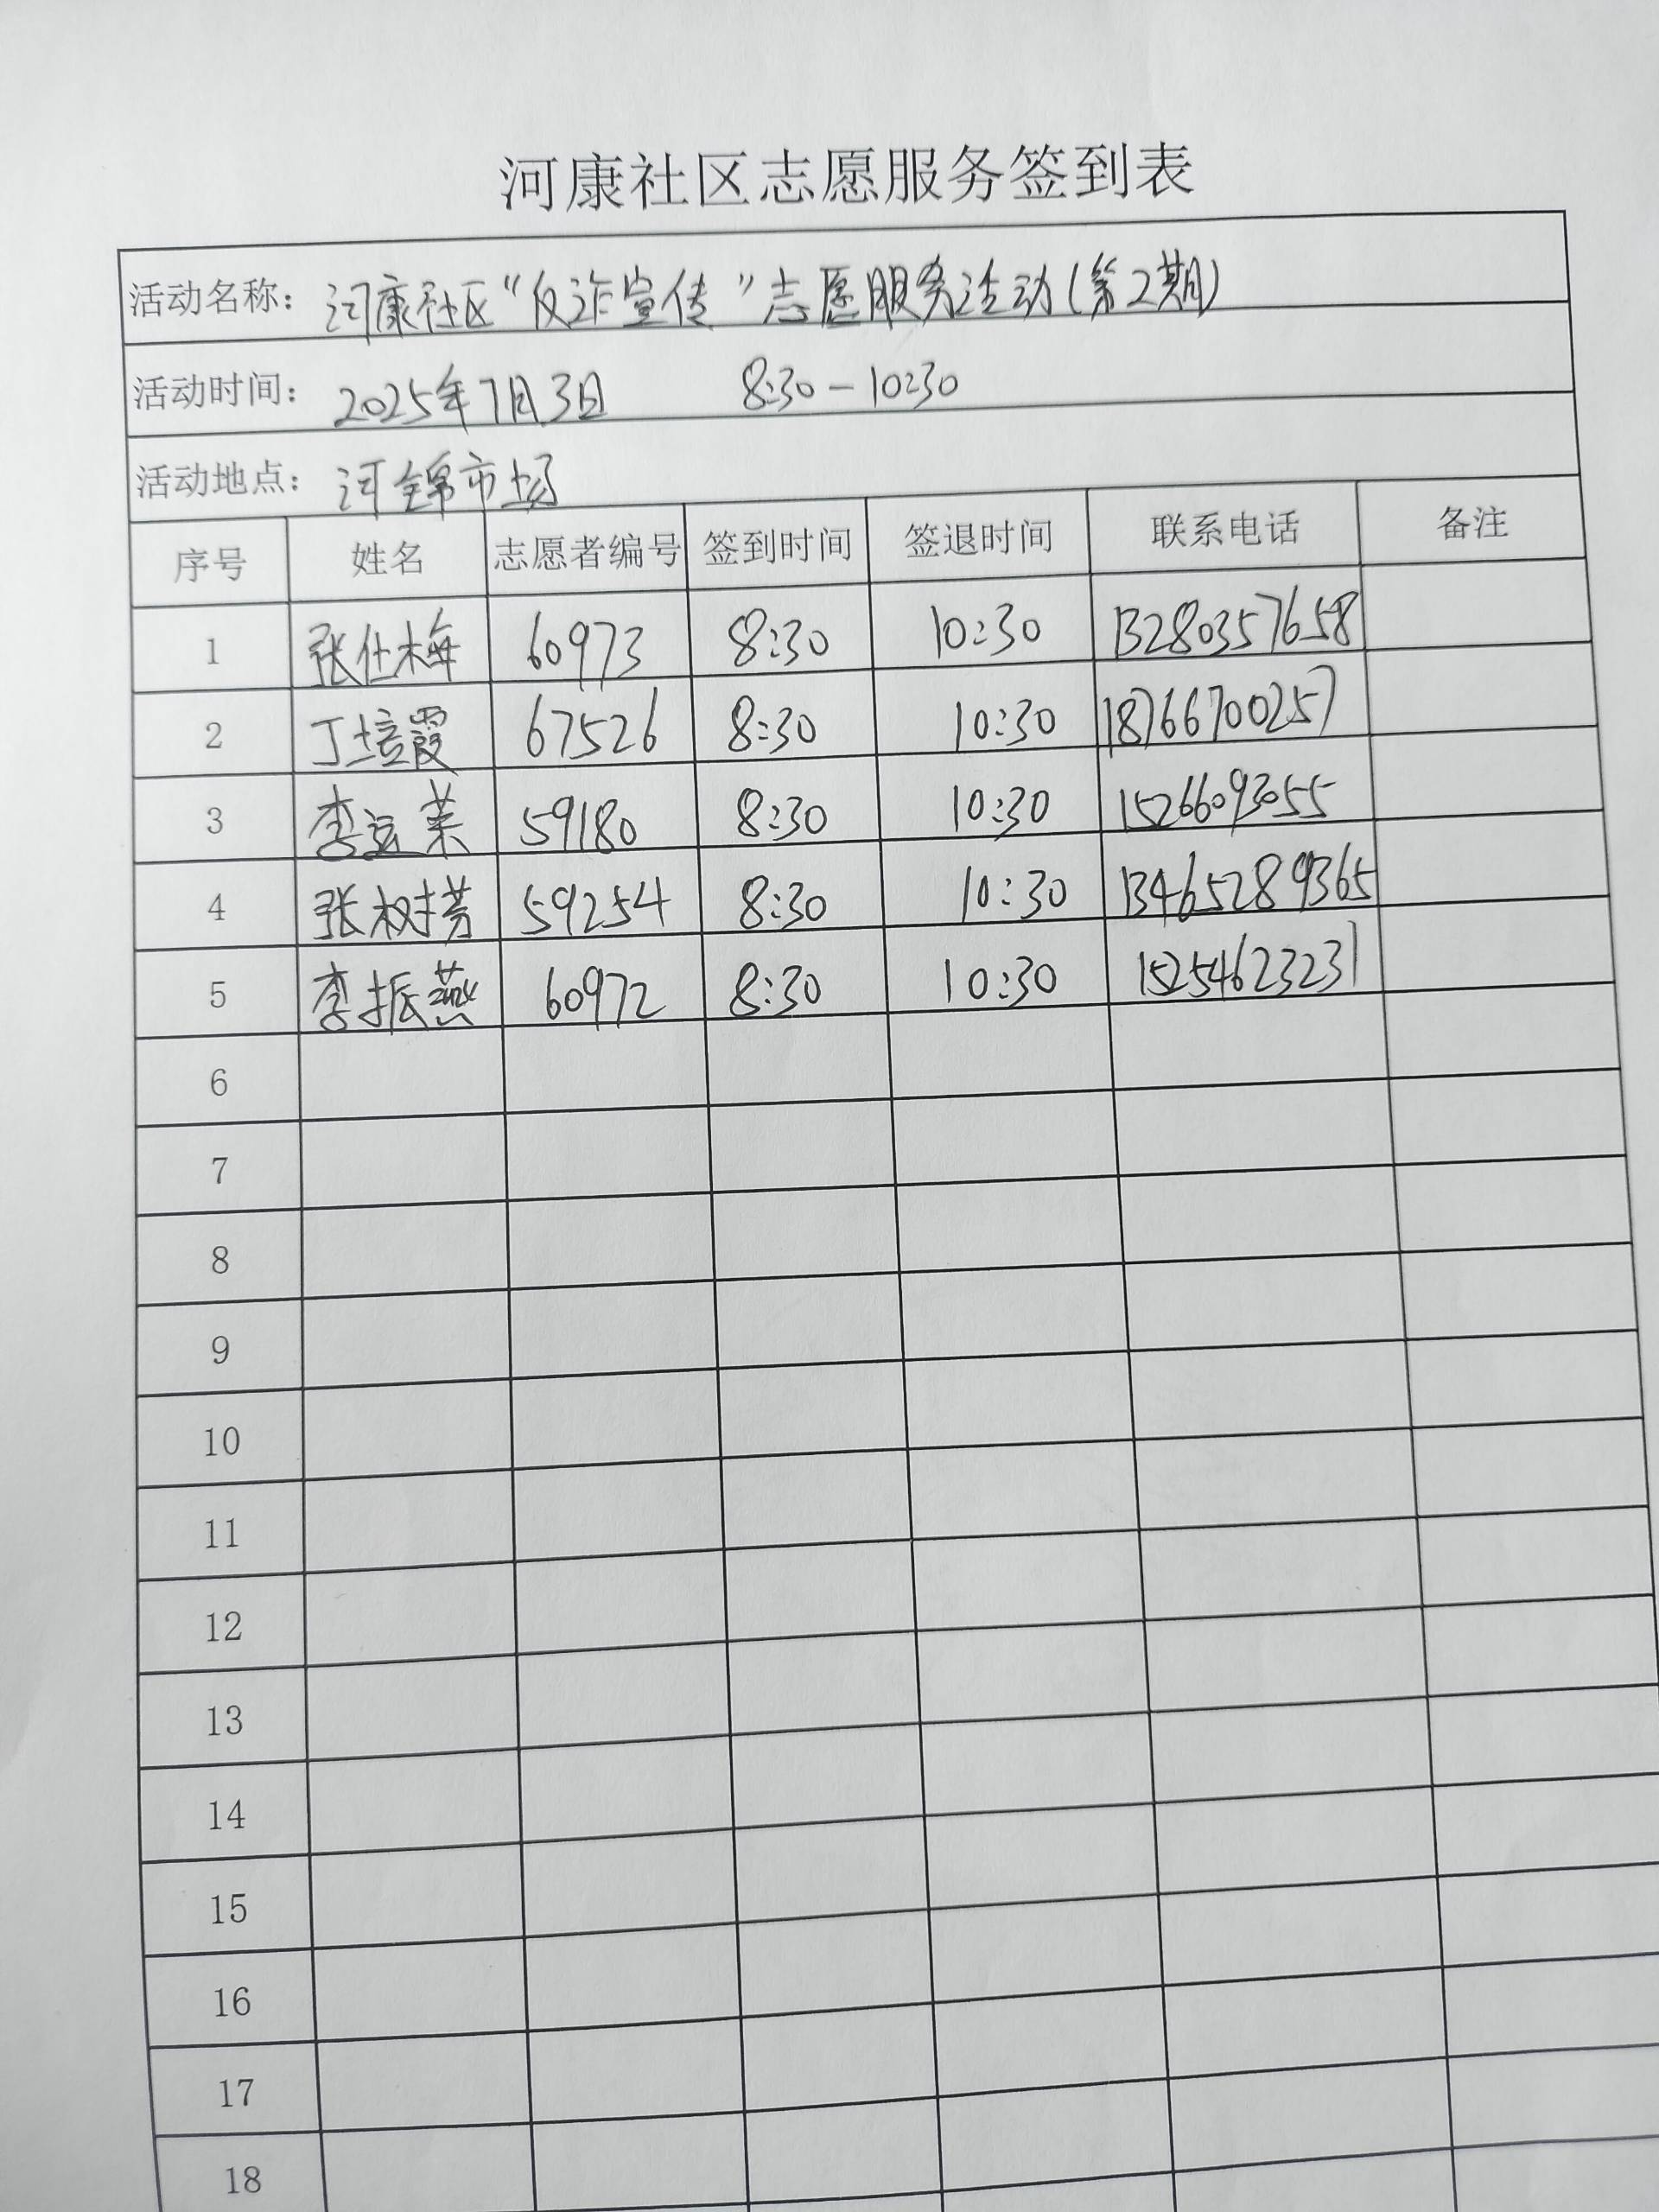 河康社区志愿服务签到表
活动名称：河康社区“反诈宣传”志愿服务活动(第2期)
活动时间：2025年7月3日 8:30-10:30
活动地点：河锦市场
序号 姓名 志愿者编号 签到时间 签退时间 联系电话 备注
1 张仕梅 60973 8:30 10:30 13280357658
2 丁培霞 67526 8:30 10:30 18766700257
3 李运荣 59180 8:30 10:30 15266093055
4 张树芳 59254 8:30 10:30 13465289365
5 李振燕 60972 8:30 10:30 15254623231
6
7
8
9
10
11
12
13
14
15
16
17
18